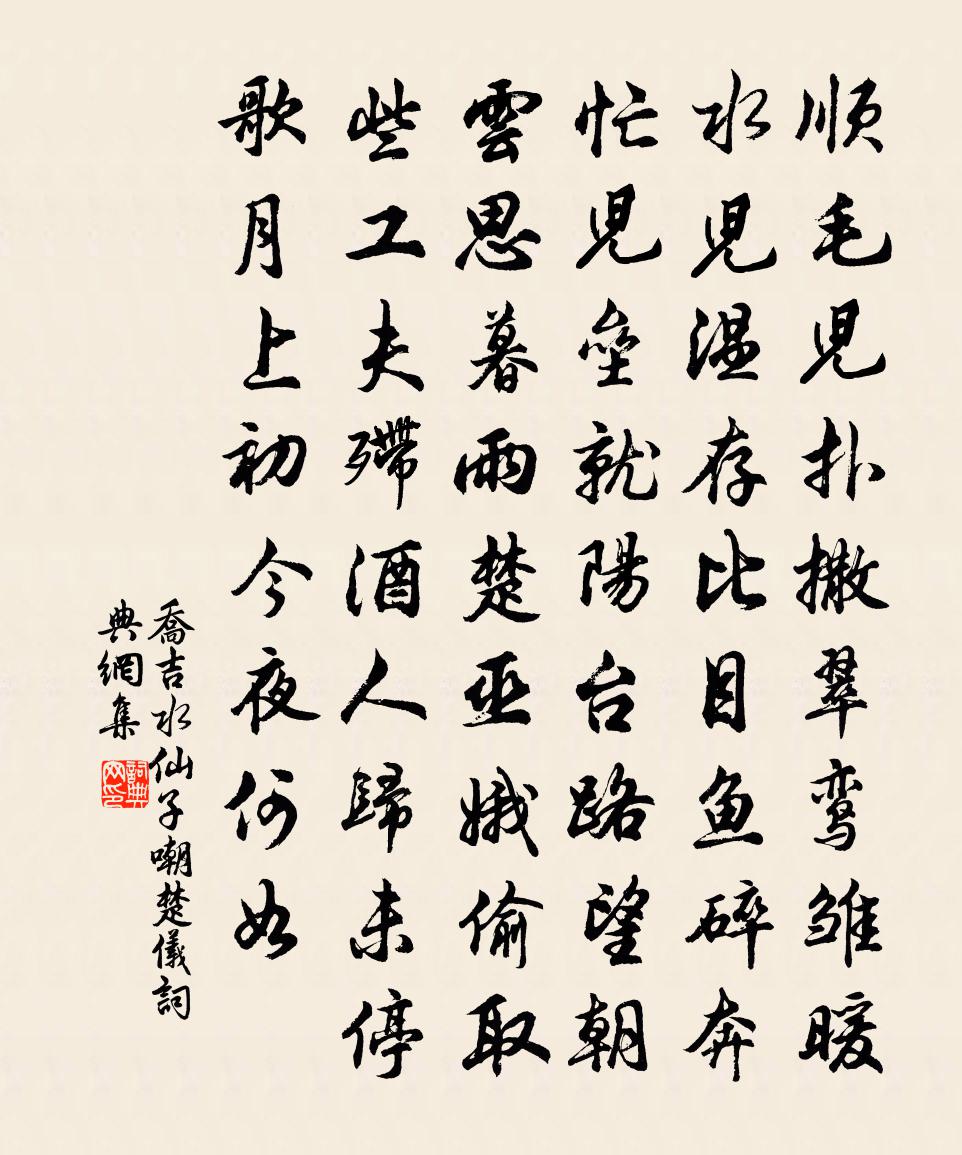 順毛児扑撒翠鸾雏暖
水児温存比目鱼碎奔
忙児垒就陽台路望朝
雲思暮雨楚巫娥偷取
些工夫殢酒人歸未停
歌月上初今夜何如
喬吉水仙子嘲楚儀詞
典網集
詞典
网印